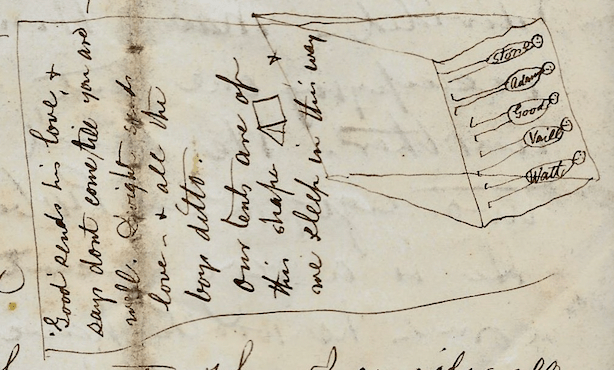 "Good" sends his love, &
says dont come till you are
well. Dwight sends
love - & all the
boys ditto.
Our tents are of
this shape &
we sleep in this way
Stone
Adams
Good
Vaill
Watt